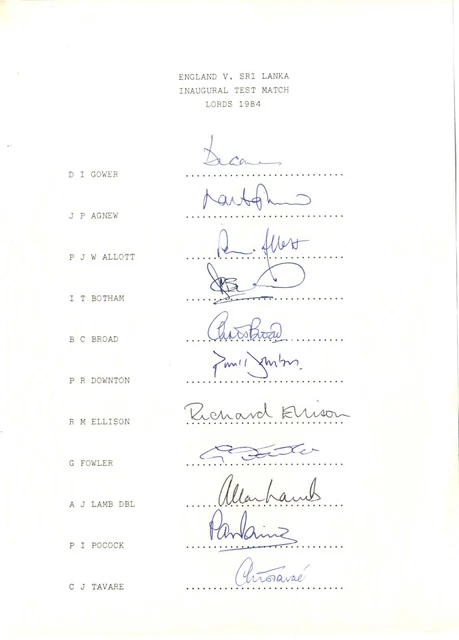 ENGLAND V. SRI LANKA
INAUGURAL TEST MATCH
LORDS 1984
D I GOWER
J P AGNEW
P J W ALLOTT
I T BOTHAM
B C BROAD Chris Broad
P R DOWNTON
R M ELLISON Richard Ellison
G FOWLER
A J LAMB DBL Allan Lamb
P I POCOCK
C J TAVARE